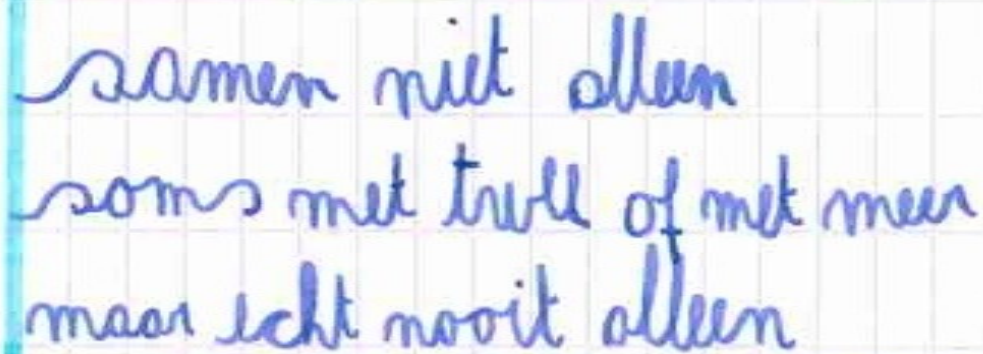 samen niet alleen
soms met twee of met meer
maar echt nooit alleen